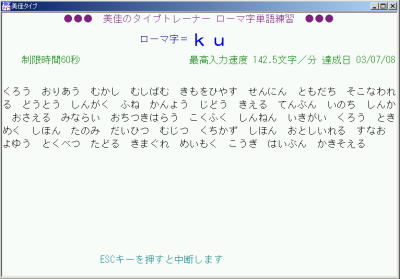 美佳タイプ
●●● 美佳のタイプトレーナー ローマ字単語練習 ●●●
ローマ字＝ ｋｕ
制限時間60秒 最高入力速度 142.5文字／分 達成日 03/07/08
くろう おりあう むかし むしばむ きもをひやす せんにん ともだち そこなわれ
る どうとう しんがく ふね かんよう じどう きえる てんぶん いのち しんか
おさえる みならい おちつきはらう こくふく しんねん いきがい くろう とき
めく しほん たのみ だいひつ むじつ くちかず しほん おとしいれる すなお
よゆう とくべつ たどる きまぐれ めいもく こうぎ はいぶん かきそえる
ESCキーを押すと中断します